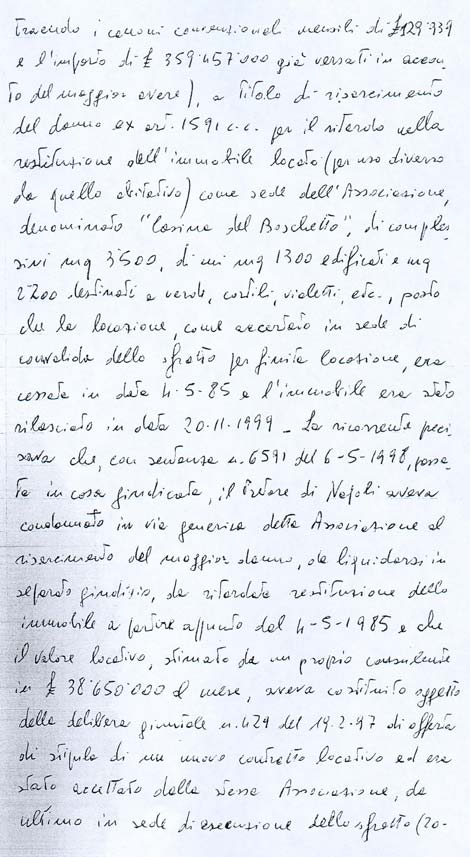 traendo i canoni convenzionali mensili di £ 129.939
e l'importo di £ 359.457.000 già versati in accon-
to del maggior avere), a titolo di risarcimento
del danno ex art. 1591 c.c. per il ritardo nella
restituzione dell'immobile locato (per uso diverso
da quello abitativo) come sede dell'Associazione,
denominato "Casina del Boschetto", di comples-
sivi mq 3500, di cui mq 1300 edificati e mq
2200 destinati a verde, cortili, vialetti, etc., posto
che la locazione, come accertato in sede di
convalida dello sfratto per finita locazione, era
cessata in data 4-5-85 e l'immobile era stato
rilasciato in data 20.11.1999 - La ricorrente preci
sava che, con sentenza n. 6591 del 6-5-1998, passa-
ta in cosa giudicata, il Pretore di Napoli aveva
condannato in via generica detta Associazione al
risarcimento del maggior danno, da liquidarsi in
separato giudizio, da ritardata restituzione dello
immobile a partire appunto dal 4-5-1985 e che
il valore locativo, stimato da un proprio consulente
in £ 38.650.000 al mese, aveva costituito oggetto
della delibera giuntale n. 429 del 19.2.97 di offerta
di stipula di un nuovo contratto locativo ed era
stato accettato dalla stessa Associazione, da
ultimo in sede di esecuzione dello sfratto (20-